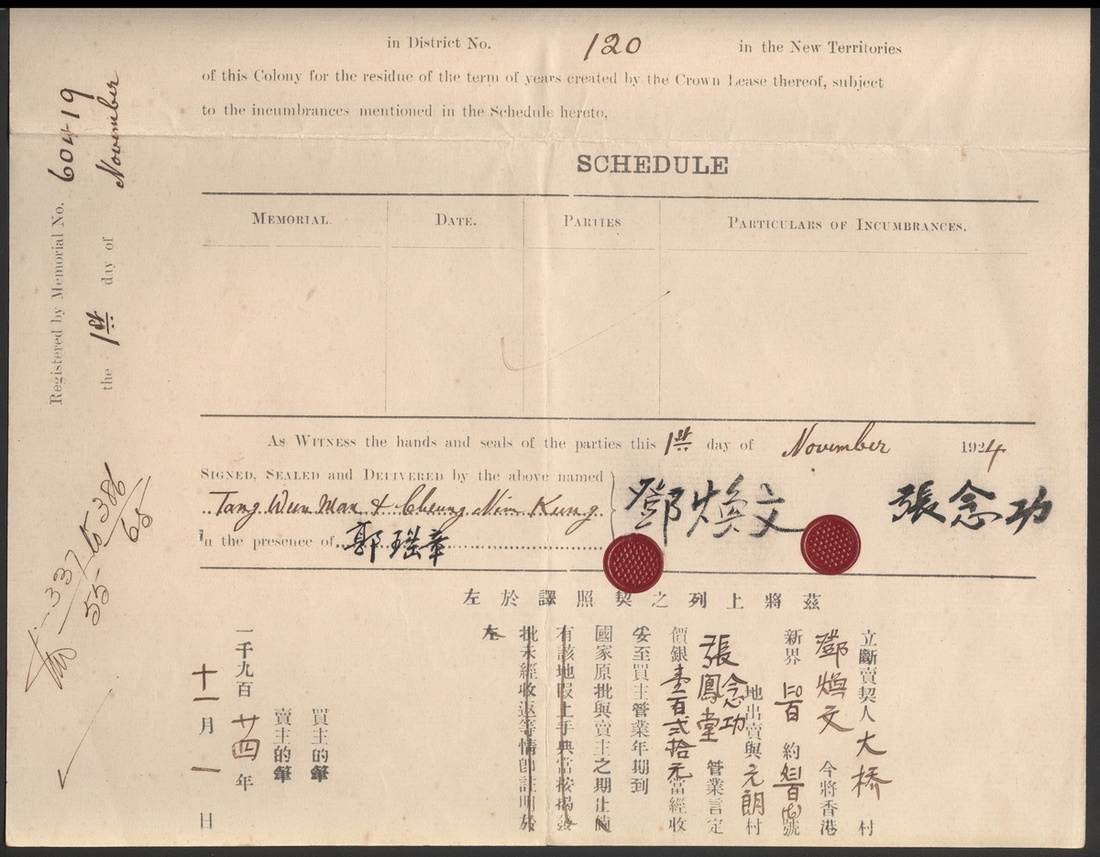 in District No. 120 in the New Territories
of this Colony for the residue of the term of years created by the Crown Lease thereof, subject
to the incumbrances mentioned in the Schedule hereto,
SCHEDULE
MEMORIAL. DATE. PARTIES PARTICULARS OF INCUMBRANCES.
AS WITNESS the hands and seals of the parties this 1st day of November 1924
SIGNED, SEALED and DELIVERED by the above named
Tang Wun Man & Cheung Nim Kung
鄧煥文 張念功
In the presence of 郭瑞章
Registered by Memorial No. 60419
the 1st day of November
337 to 386
55- 65
茲將上列之契照譯於左
立斷賣契人大橋村
鄧煥文 今將香港
新界 約 號
地出賣與元朗村
張念功
鳳堂 管業言定
價銀壹百弍拾元當經收
妥至買主管業年期到
國家原批與賣主之期止倘
有該地叚上手典當按揭
批未經收返等情卽註明於
左
買主的筆
賣主的筆
一千九百廿四年
十一月一日